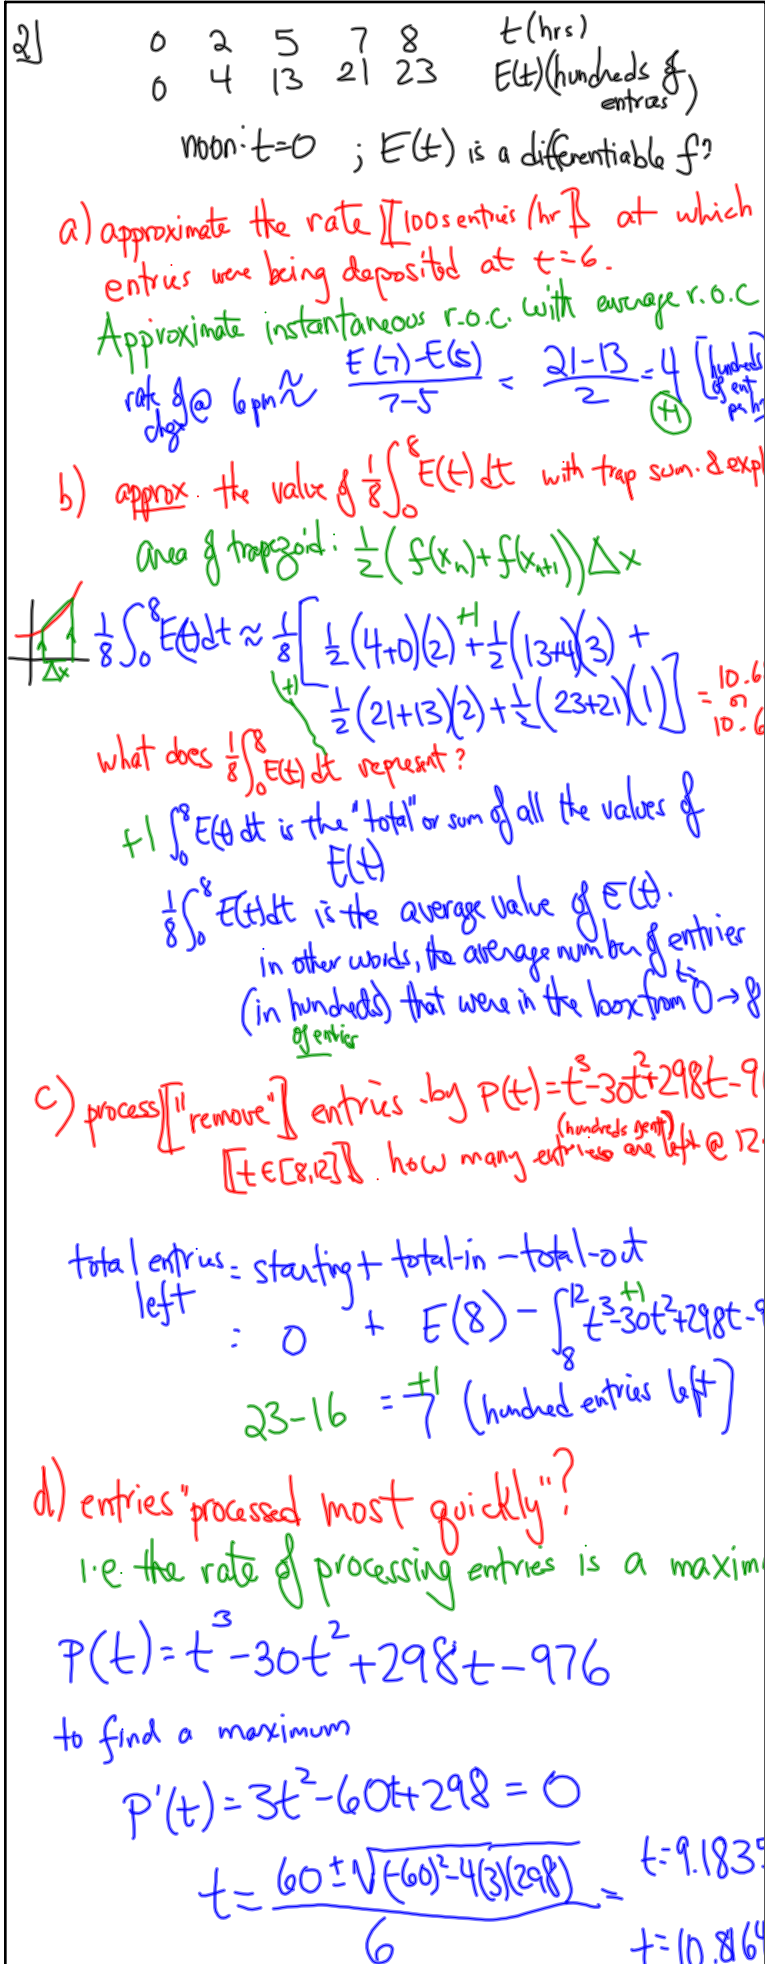 2)
0 2 5 7 8 t (hrs)
0 4 13 21 23 E(t) (hundreds of entries)
noon: t=0 ; E(t) is a differentiable f?
a) approximate the rate [[100s entries/hr]] at which
entries were being deposited at t=6.
Approximate instantaneous r.o.c. with average r.o.c
rate of chge @ 6pm ≈ E(7)-E(5) / 7-5 = 21-13 / 2 = 4 [hundreds of ent per h
+1
b) approx. the value of 1/8 ∫₀⁸ E(t) dt with trap sum. & expl
area of trapezoid: 1/2 (f(xₙ)+f(xₙ₊₁)) Δx
Δx
1/8 ∫₀⁸ E(t) dt ≈ 1/8 [ 1/2 (4+0)(2) + 1/2 (13+4)(3) +
+1
1/2 (21+13)(2) + 1/2 (23+21)(1) ] = 10.6
+1
or
10.6
what does 1/8 ∫₀⁸ E(t) dt represent?
+1 ∫₀⁸ E(t) dt is the "total" or sum of all the values of
E(t)
1/8 ∫₀⁸ E(t) dt is the average value of E(t).
in other words, the average number of entries
(in hundreds) that were in the box from t= 0 → 8
of entries
c) process [["remove"]] entries by P(t) = t³-30t²+298t-9
(hundreds of ent)
[[t∈[8,12]]] how many entries are left @ 12
total entries left = starting + total-in - total-out
= 0 + E(8) - ∫₈¹² t³-30t²+298t-9
+1
23-16 = 7 (hundred entries left)
+1
d) entries "processed most quickly"?
i.e. the rate of processing entries is a maxim
P(t) = t³-30t²+298t-976
to find a maximum
P'(t) = 3t²-60t+298 = 0
t = 60 ± √((-60)²-4(3)(298)) / 6 = t=9.1835
t=10.8164